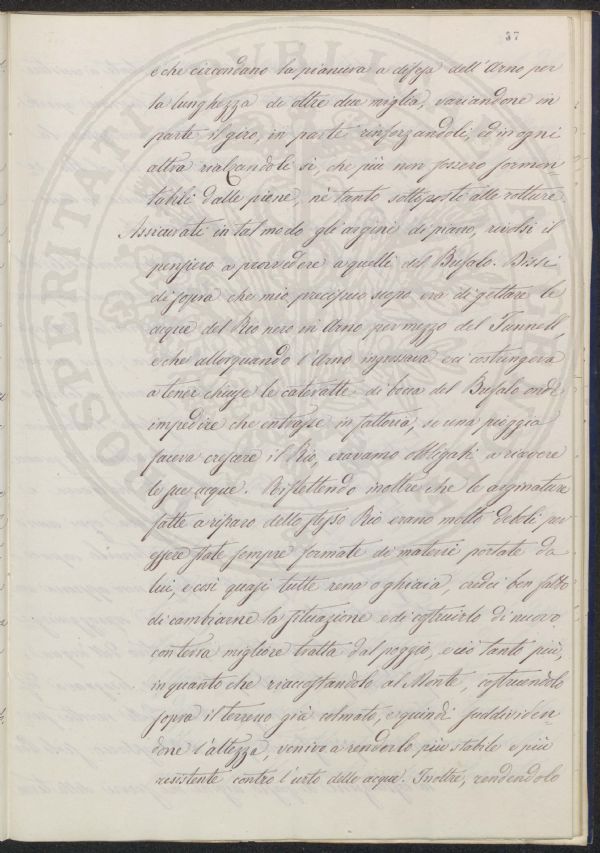 37
e che circondano la pianura a difesa dell'Arno per
la lunghezza di oltre due miglia, variandone in
parte il giro, in parte rinforzandoli, ed in ogni
altra rialzandoli si, che più non fossero sormon-
tabili dalle piene, nè tanto sottoposti alle rotture.
Assicurati in tal modo gli argini di piano, rivolsi il
pensiero a provvedere a quelli del Bufalo. Dissi
di sopra che mio precipuo scopo era di gettare le
acque del Rio nero in Arno, per mezzo del Tunnell,
e che allorquando l'Arno ingrossava e ci costringeva
a tener chiuse le cateratte di bocca del Bufalo onde
impedire che entrasse in fattoria, se una pioggia
faceva crescere il Rio, eravamo obbligati a ricevere
le sue acque. Riflettendo inoltre che le arginature
fatte a riparo dello stesso Rio erano molto deboli per
essere state sempre formate di materie portate da
lui, e così quasi tutte rena o ghiaia, credei ben fatto
di cambiarne la situazione e di costruirlo di nuovo
con terra migliore tratta dal poggio, e ciò tanto più,
in quanto che riaccostandolo al Monte, costruendolo
sopra il terreno già colmato, e quindi suddividen-
done l'altezza, venivo a renderlo più stabile e più
resistente contro l'urto delle acque. Inoltre, rendendolo